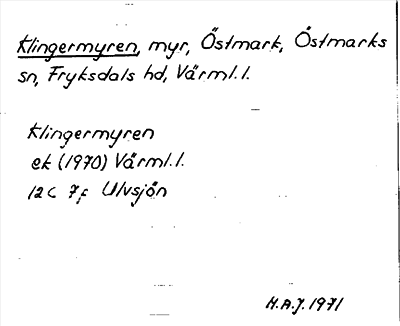 Klingermyren, myr, Östmark, Östmarks
sn, Fryksdals hd, Värml. l.
Klingermyren
ek (1970) Värml. l.
12 C 7f Ulvsjön
H.A.J. 1971